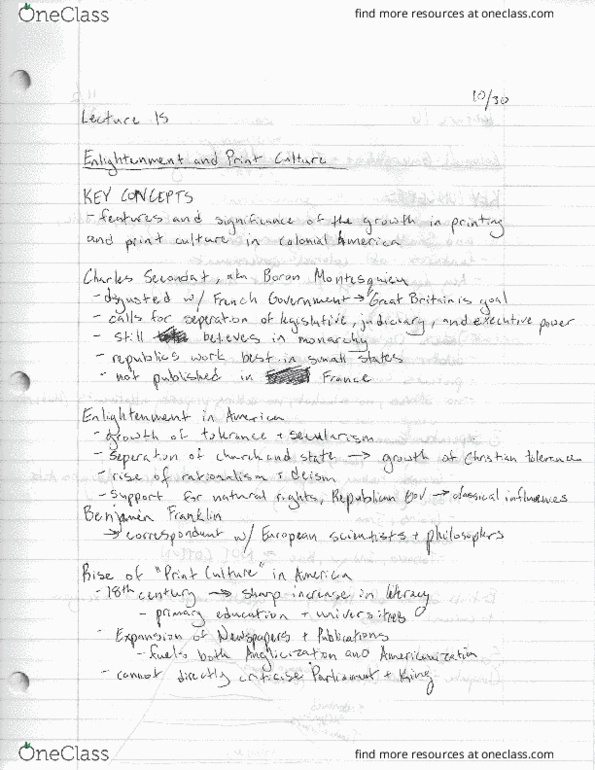 OneClass
find more resources at oneclass.com
10/30
Lecture 15
Enlightenment and Print Culture
KEY CONCEPTS
- features and significance of the growth in printing
and print culture in colonial America
Charles Secondat, aka Baron Montesquieu
- disgusted w/ French Government → Great Britain is goal
- calls for seperation of legislative, judiciary, and executive power
- still believes in monarchy
- republics work best in small states
- not published in France
Enlightenment in America
- growth of tolerance + secularism
- seperation of church and state → growth of Christian tolerence
- rise of rationalism + deism
- support for natural rights, Republican gov → classical influences
Benjamin Franklin
→ correspondent w/ European scientists + philosophers
Rise of "Print Culture" in America
- 18th century → sharp increase in literacy
- primary education + universities
- Expansion of Newspapers + Publications
- fuels both Anglicization and Americanization
- cannot directly criticise Parliament + King
OneClass
find more resources at oneclass.com